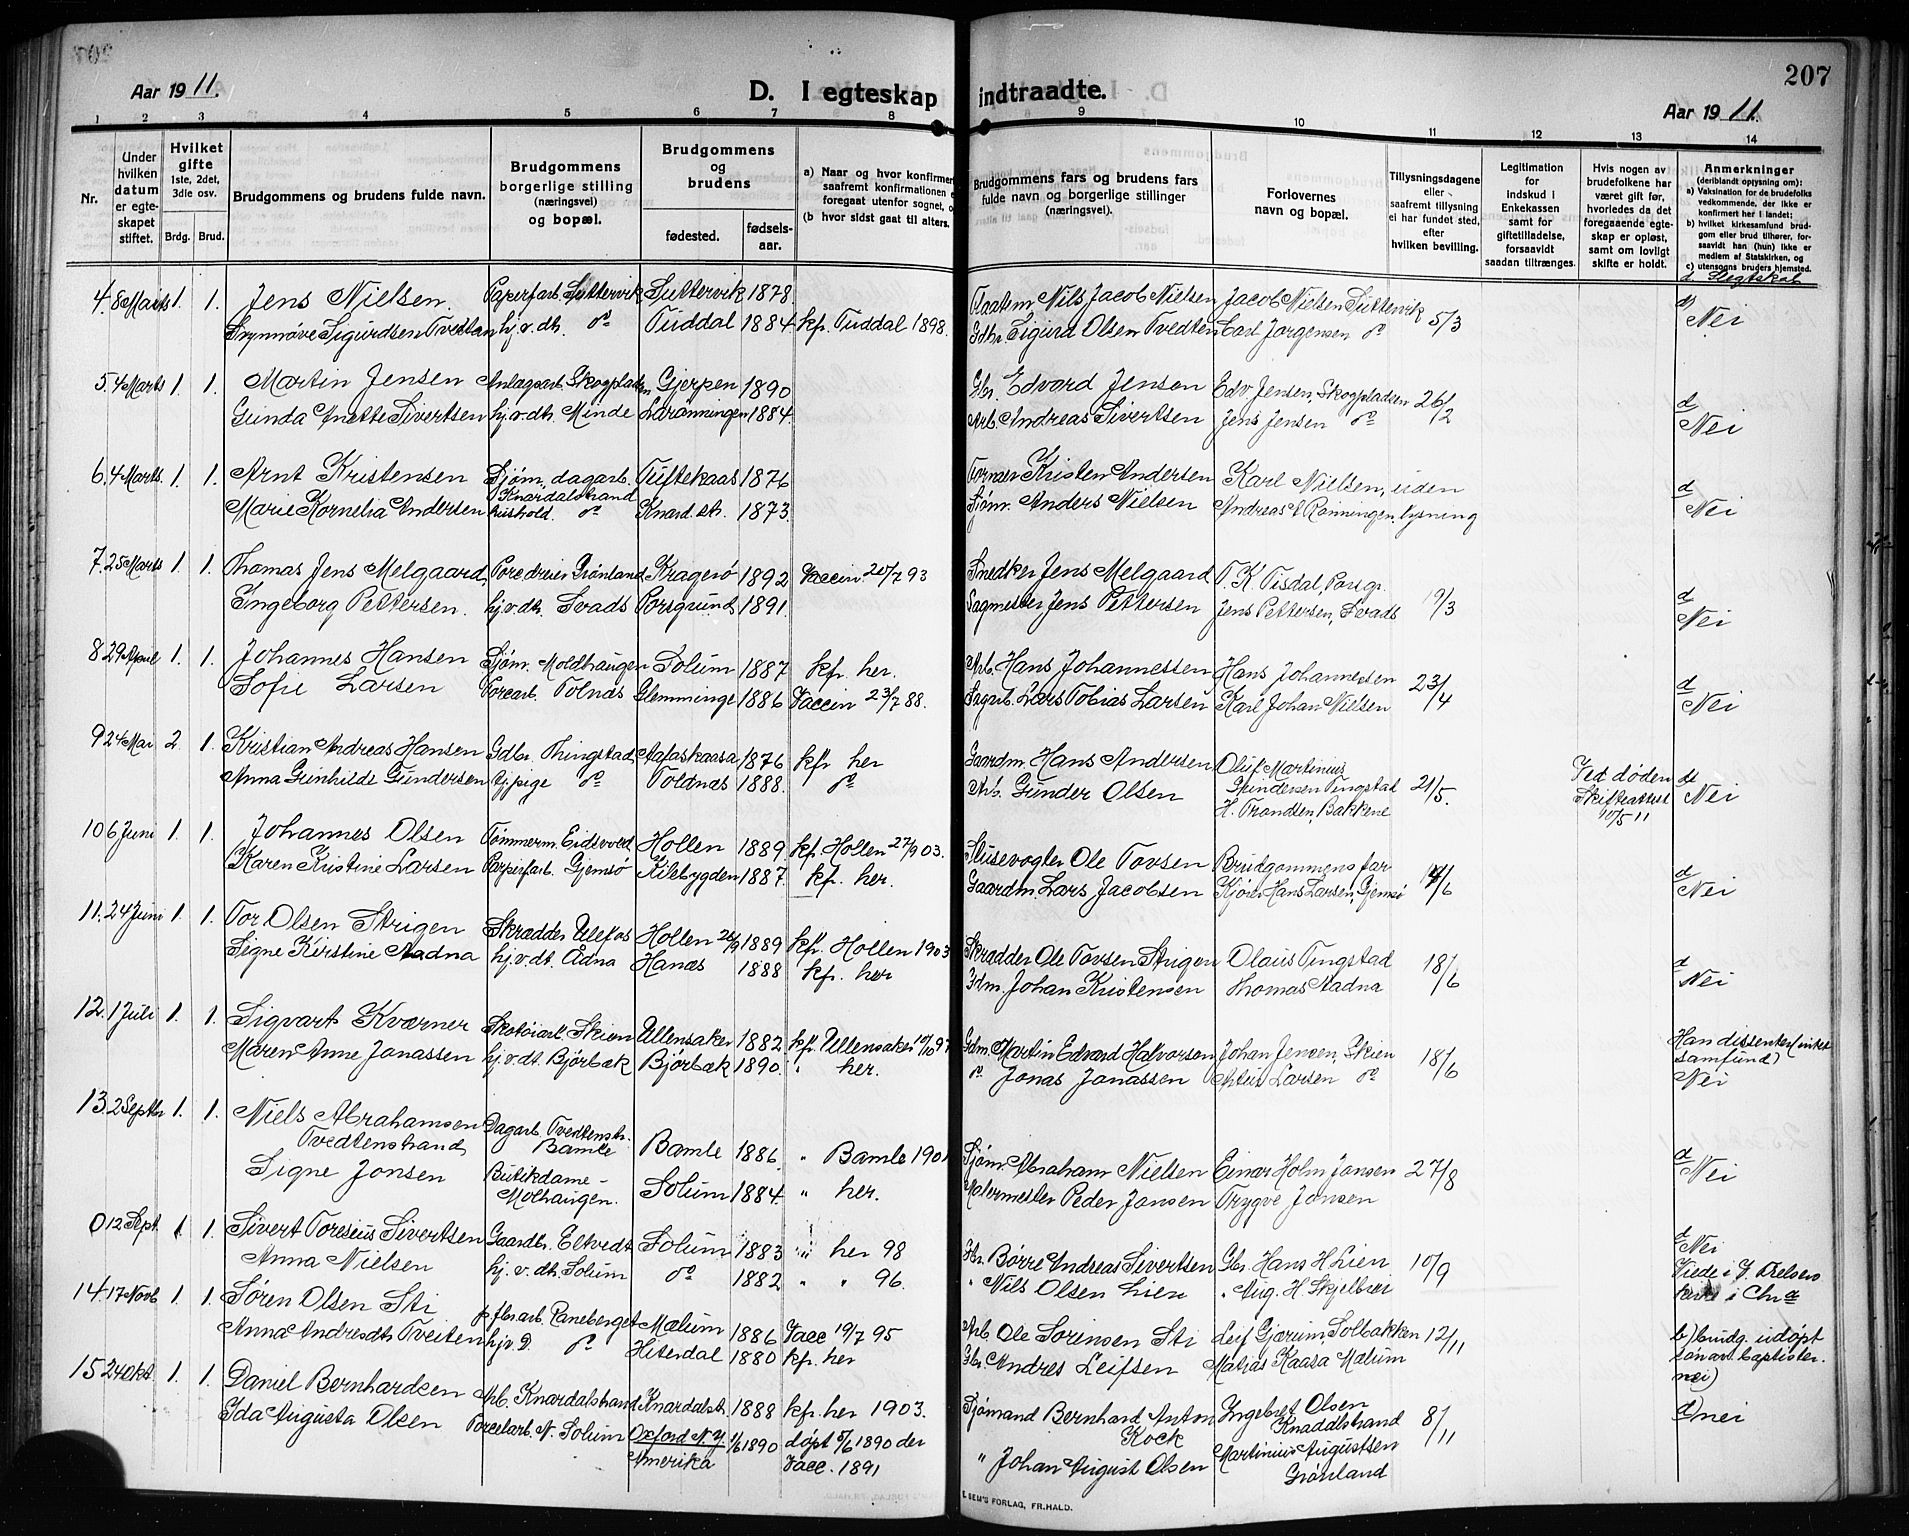 207
Aar 19 11.
D. I egteskap indtraadte.
Aar 19 11.
1 2 3 4 5 6 7 8 9 10 11 12 13 14
Nr.
Under hvilken datum er egteskapet stiftet.
Hvilket gifte 1ste, 2det, 3die osv.
Brdg. Brud.
Brudgommens og brudens fulde navn.
Brudgommens borgerlige stilling (næringsvei) og bopæl.
Brudgommens og brudens
fødested. fødselsaar.
a) Naar og hvor konfirmer
saafremt konfirmationen e
foregaat utenfor sognet, o
(b hvor sidst gaat til alters.
Brudgommens fars og brudens fars fulde navn og borgerlige stillinger (næringsvei).
Forlovernes navn og bopæl.
Tillysningsdagene eller saafremt tillysning ei har fundet sted, efter hvilken bevilling.
Legitimation for indskud i Enkekassen samt for giftetilladelse, forsaavidt saadan tiltrænges.
Hvis nogen av brudefolkene har været gift før, hvorledes da det foregaaende egteskap er opløst, samt om lovligt skifte er holdt.
Anmerkninger (deriblandt opjysning om): a) Vaksination for de brudefolks vedkommende, der ikke er konfirmert her i landet; b) hvilket kirkesamfund brudgom eller brud tilhører, forsaavidt han (hun) ikke er medlem af Statskirken, og c) utensogns bruders hjemsted.
d. Slegtskab
4. 8 Marts 1. 1. Jens Nielsen. Papirfarb. Suttervik Suttervik 1878. Nils Jacob Nielsen Jacob Nielsen Suttervik 5/3 d) Nei
Synnøve Sigurdsen Tvedtan hj. v. dh. do Tuddal 1884 kf. Tuddal 1898. Gdbr Sigurd Olsen Tvedten Carl Jorgensen do
5. 4 Marts 1. 1. Martin Jensen Anlægsarb. Skogpladsen Gjerpen 1890 Gbr. Edvard Jensen Edv. Jensen, Skogpladsen 26/2 d Nei
Gunda Anette Sivertsen hj. v. dh. Minde 1884. Arb. Andreas Sivertsen Jens Jensen do
6. 4 Marts. 1. 1. Arnt Kristensen Sjøm. dagarb. Tuftekaas 1876 Kristen Andersen Karl Nielsen, uden d Nei
Knardalstrand
Marie Kornelia Andersen hushold. do Knard. st. 1873. Sjøm. Anders Nielsen Andreas Ronningen lysning
7. 25 Marts 1. 1. Thomas Jens Melgaard Grønland Kragerø 1892 Vaccin. 20/7 93 Snedker Jens Melgaard T. K. Tisdal, Porsgr. 19/3 d Nei
Ingeborg Pettersen. hj. v. dh. Svads Porsgrund 1891. Sagmester Jens Pettersen Jens Pettersen, Svads
8. 29 April 1. 1. Johannes Hansen Sjøm. Moldhaugen Solum 1887 kf. her. Arb. Hans Johannessen Hans Johannessen 23/4 d Nei
Sofie Larsen Porcarb. Tolnæs Glemminge 1886 Vaccin 23/7 88. Sagarb. Lars Tobias Larsen Karl Johan Nielsen
9. 24 Mai 2. 1. Kristian Andreas Hansen Gdbr. Thingstad Aafoskaasa 1876 kfr her Gaardm. Hans Andersen Oluf Martinius Gundersen Tingstad 21/5. Ved døden Skifteattest 10/5 11 d Nei
Anna Gunhilde Gundersen pige do Toldnæs 1888. do Arb. Gunder Olsen H. Trondsen, Bakkene
10. 6 Juni 1. 1. Johannes Olsen Tømmerm. Eidsvold Hollen 1889 kf. Hollen 27/9 03. Slusevogter Ole Tovsen Brudgommens far /6 d Nei
Karen Kristine Larsen Papirfarb. Gjemsø Kilebygden 1887. kf. her. Gaardm. Lars Jacobsen Kjører Hans Larsen, Gjemsø
11. 24 Juni 1. 1. Tor Olsen Strigen Skrædder Ulefos Hollen 26/9 1889 kfr. Hollen 1903 Skrædder Ole Tovsen Strigen Olaus Tingstad 18/6 d Nei
Signe Kirstine Aadna hj. v. dt. Adna Hanæs 1888 kfr. her Gdm. Johan Kristensen Thomas Aadna
12. 1 Juli 1. 1. Sigvart Kværner Skotøiarb. Skien Ullensaker 1882 kfr. Ullensaker /10 97 Gdm. Martin Edvard Halvorson Johan Jensen, Skien 18/6 Han dissenter (intet samfund)
Maren Anne Jonassen hj. v. dt. Bjørbæk Bjørbæk 1890. " her. do Jonas Jonassen Larsen do Nei
13. 2 Septbr 1. 1. Niels Abrahamsen Tvedtenstrand Dagarb. Tvedtenstr. Bamle Bamle 1886. " Bamle 1901 Sjøm. Abraham Nielsen Einar Holm Jansen 27/8 d Nei
Signe Jonsen Butikdame - Molhaugen. Solum 1884. " her. Malermester Peder Jansen Trygve Jonsen
0 12 Sept. 1 1. Sivert Toresius Sivertsen Gaardbr. Eltvedt Solum 1883 " her 98 Gbr. Børre Andreas Sivertsen Gbr. Hans H Lien 10/9 d Nei
Anna Nielsen hj. v. dh. Solum do 1882 " " 96. " Nils Olsen Lien " Aug. H. Skjelbrei Viede i kirke i Chra
14. 17 Novb 1. 1. Søren Olsen Sti Raneberget Mælum 1886 Vacc 19/7 95 Arb. Ole Sorensen Sti Leif Gjærum, Solbakken 12/11 b) brudg. udøpt søn av baptister.
Anna Andresdtr Tveiten hj. v. D. do Hiterdal 1880 kfr. her Gbr. Andres Leifsen Matias Kaasa Mælum nei)
15. 24 Okt. 1. 1. Daniel Bernhardsen Arb. Knardalstrand Knardalstr. 1888 kfr. her 1903. Sjømand Bernhard Anton Kock Ingebret Olsen Knaddlstrand 8/11 d) nei
Ida Augusta Olsen Porcelarb. N. Solum Oxford N. Y. Amerika 1/6 1890 døpt 5/6 1890 der Vacc. 1891 " Johan August Olsen Martinius Augustsen Grønland
E. SEM'S FORLAG, FR.HALD.